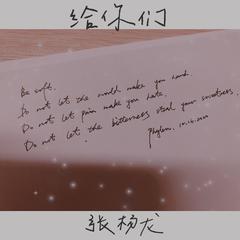 给你们
Be soft.
Do not let the world make you hard.
Do not let pain make you hate.
Do not let the bitterness steal your sweetness.
张杨龙